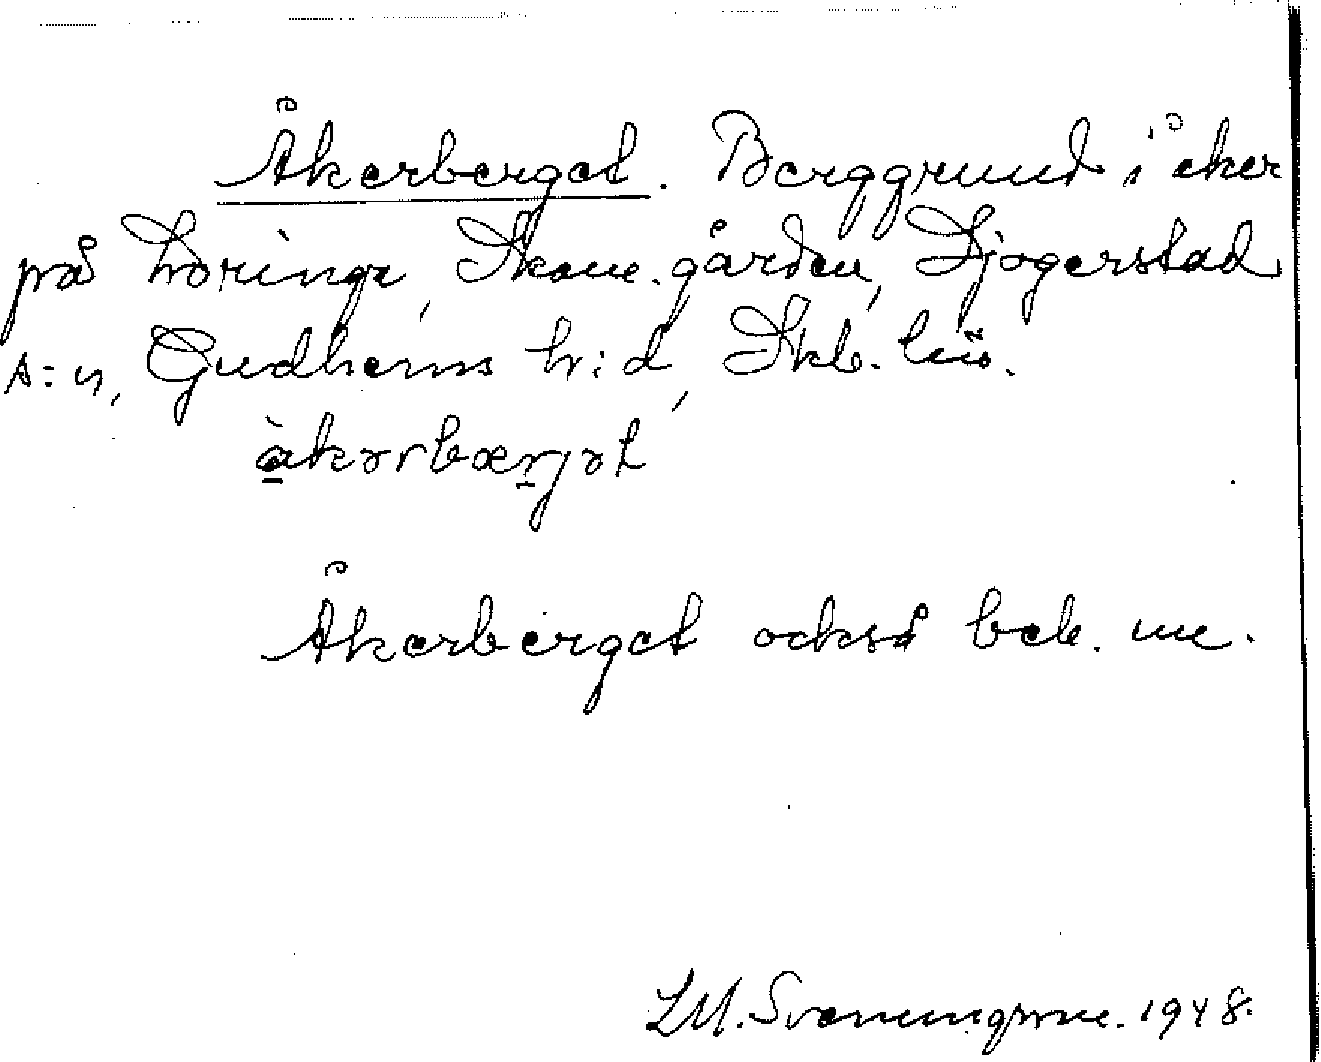 Åkerberget. Berggrund i åker
på Loringa, Skattegården, Sjogerstad
s:n, Gudhems h:d, Skb. län.
åkərbærjət
Åkerberget också bek. me.
LM. Svenungsson. 1948.